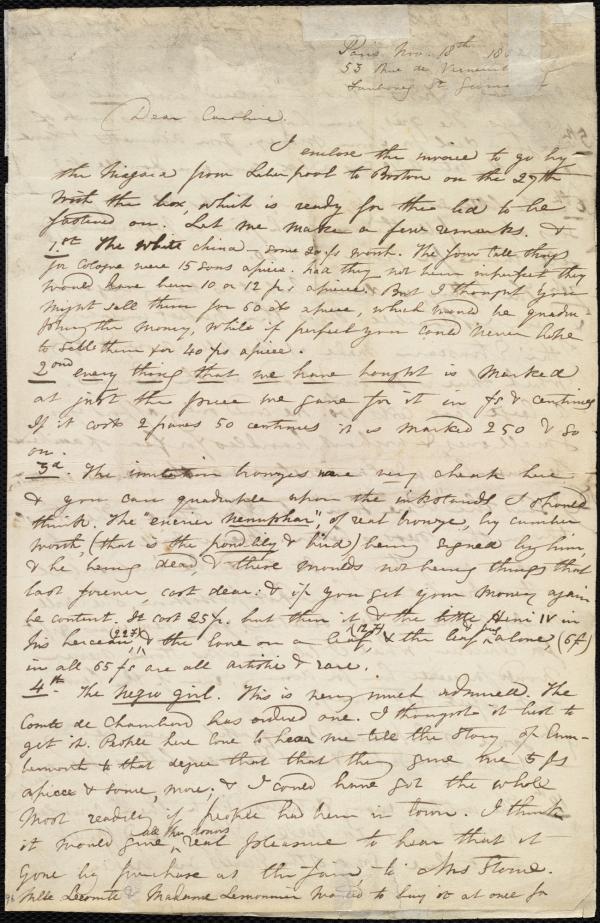 Paris Nov. 18th 18
53 Rue de Verneuil
Faubourg St. Germain
Dear Caroline.
I enclose the invoice to go by
the Niagara from Liverpool to Boston on the 27th
with the box, which is ready for the lid to be
fastened on. Let me make a few remarks. &
1.st The white china — some 20 fs worth. The four tall things
for cologne were 15 sous apiece. had they not been imperfect they
would have been 10 or 12 frs apiece. But I thought you
might sell them for 60 cts apiece, which would be quadru-
pling the money, while if perfect you could never hope
to sell them for 40 frs apiece.
2ond every thing that we have bought is marked
at just the price we gave for it in fs & centimes
If it cost 2 francs 50 centimes it is marked 250 & so
on.
3d. The imitation bronzes are very cheap here
& you can quadruple upon the inkstands I should
think. The "encrier nenuphar", of real bronze, by Cumber
worth, (that is the pond lily & bird) being signed by him,
& he being dead, & these moulds not being things that
last forever, cost dear: & if you get your money again
be content. It cost 25 f. but then it & the little Henri IV in
his berceau, (22 f) & the love on a leaf, (12 f) & the leaf alone, (6 f)
in all 65 fs are all artistic & rare.
4th. The Negro girl. This is very much admired. The
Comte de Chambord has ordered one. I thought it best to
get it. People here love to hear me tell the story of Cum-
berworth to that degree that that they give me 5 fs
apiece & some, more; & I could have got the whole
most readily if people had been in town. I think
it would give all the donors real pleasure to hear that it
gone by purchase at the fair to Mrs Stowe.
Mlle Lecomte & Madame Lemonnier wanted to buy it at once for